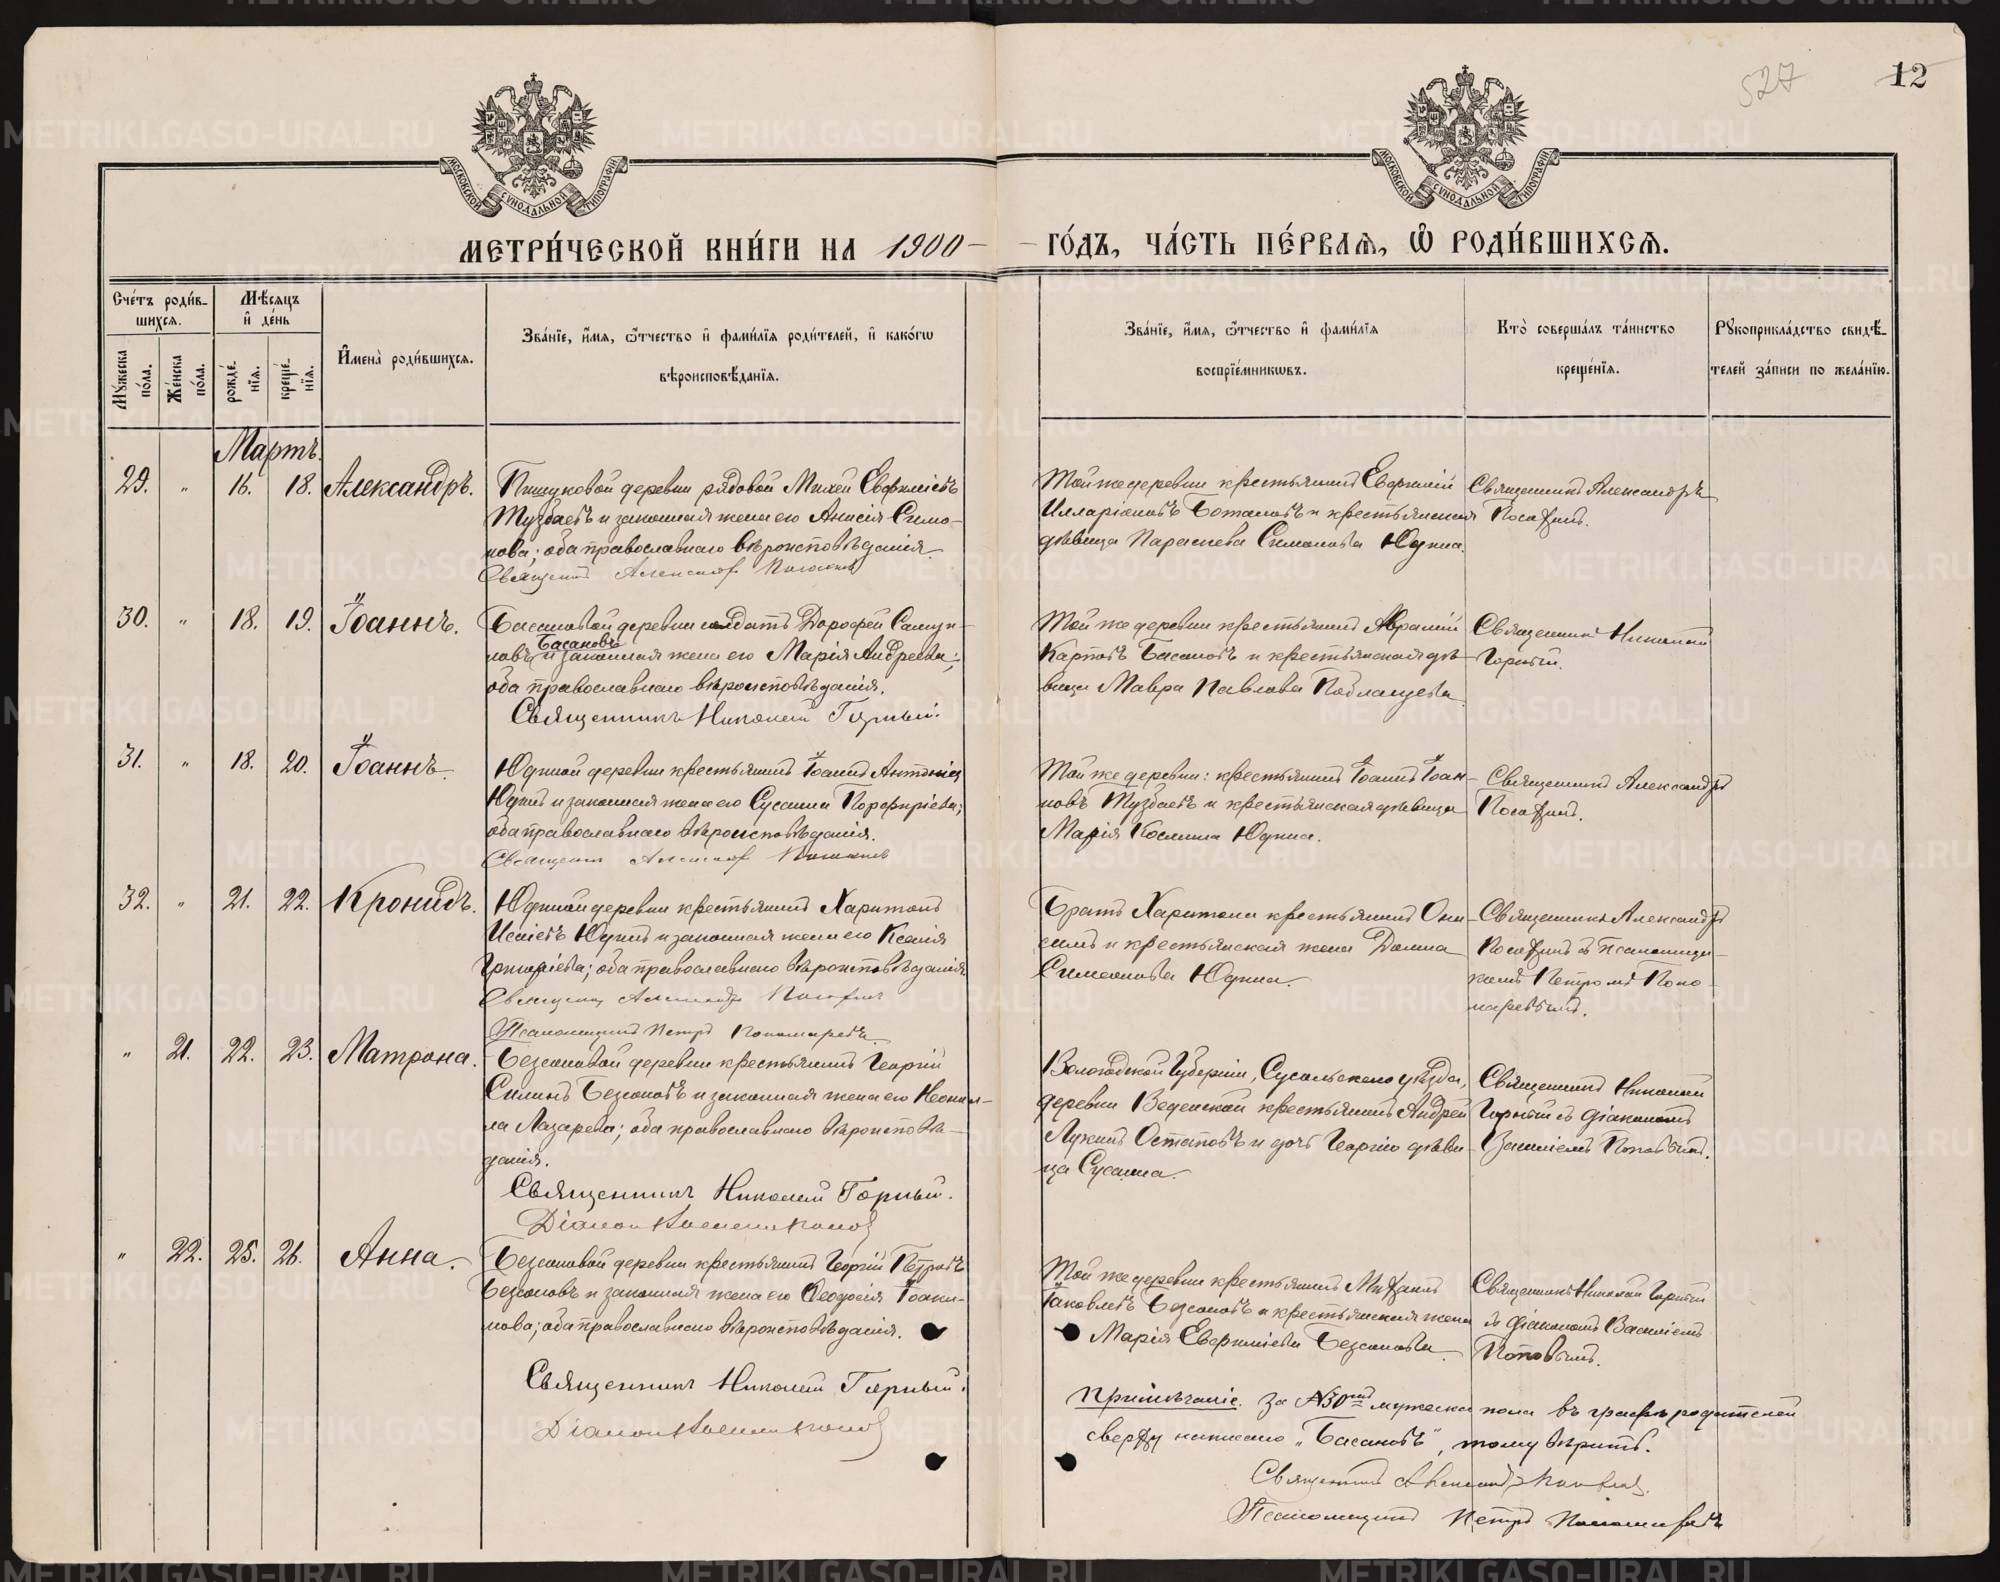 527
12
МОСКОВСКОЙ СѴНОДАЛЬНОЙ ТИПОГРАФІИ
МОСКОВСКОЙ СѴНОДАЛЬНОЙ ТИПОГРАФІИ
МЕТРИ́ЧЕСКОЙ КНИ́ГИ НА 1900 ГО́ДЪ, ЧА́СТЬ ПЕ́РВАЯ, Ѽ РОДИ́ВШИХСЯ.
Сче́тъ роди́в-
шихся.
Мѣ́сяцъ
и҆ де́нь
Мꙋ́жеска
по́ла.
Же́нска
по́ла.
рожде́-
нїя.
креще́-
нїя.
И҆мена̀ роди́вшихся.
Зва́нїе, и҆́мя, ѻ҆́тчество и҆ фами́лїя роди́телей, и҆ како́гѡ
вѣроисповѣ́данїя.
Зва́нїе, и҆́мя, ѻ҆́тчество и҆ фами́лїя
воспрїе́мникѡвъ.
Кто̀ соверша́лъ та́инство
креще́нїя.
Рꙋкоприкла́дство свидѣ́-
телей за́писи по жела́нїю.
Мартъ.
29. „ 16. 18. Александръ.
Пишуковой деревни рядовой Михей Евфиміевъ
Тузбаевъ и законная жена его Анисія Симо-
нова; оба православнаго вѣроисповѣданія.
Священникъ Александр
Той же деревни крестьянинъ Евфимій
Илларіоновъ Ботановъ и крестьянская
дѣвица Параскева Симонова Юдина.
Священникъ Александръ
30. „ 18. 19. Іоаннъ.
Басановой деревни солдатъ Дорофей Самуи-
ловъ Басановъ и законная жена его Марія Андреева;
оба православнаго вѣроисповѣданія.
Священникъ Николай Горный.
Той же деревни крестьянинъ Аврамій
Карповъ Басановъ и крестьянская дѣ-
вица Мавра Павлова
Священникъ Николай
Горный.
31. „ 18. 20. Іоаннъ.
Юдиной деревни крестьянинъ Іоаннъ Антоніевъ
Юдинъ и законная жена его Сусанна Порфиріева;
оба православнаго вѣроисповѣданія.
Священник Александр
Той же деревни: крестьянинъ Іоаннъ Іоан-
новъ Тузбаевъ и крестьянская дѣвица
Марія Космина Юдина.
Священникъ Александръ
32. „ 21. 22. Кронидъ.
Юдиной деревни крестьянинъ Харитонъ
Исаіевъ Юдинъ и законная жена его Ксенія
Григоріева; оба православнаго вѣроисповѣданія
Священник Александр
Псаломщикъ Петръ Пономаревъ.
Братъ Харитона крестьянинъ Они-
симъ и крестьянская жена Домна
Симеонова Юдина.
Священникъ Александръ
съ псаломщи-
комъ Петромъ Поно-
маревымъ.
„ 21. 22. 23. Матрона.
Безсоновой деревни крестьянинъ Георгій
Силинъ Безсоновъ и законная жена его Неони-
ла Лазарева; оба православнаго вѣроисповѣ-
данія.
Священникъ Николай Горный.
Діакон Василий Попов
Вологодской Губерніи, Сусольскаго уѣзда,
деревни Веденской крестьянинъ Андрей
Лукинъ Остаповъ и дочь Георгія дѣви-
ца Сусанна.
Священникъ Николай
Горный съ діакономъ
Василіемъ Поповымъ.
„ 22. 25. 26. Анна.
Безсоновой деревни крестьянинъ Георгій Петровъ
Безсоновъ и законная жена его Ѳеодосія Іоаки-
мова; оба православнаго вѣроисповѣданія.
Священникъ Николай Горный.
Діакон Василий Попов
Той же деревни крестьянинъ Михаилъ
Іаковлевъ Безсоновъ и крестьянская жена
Марія Евфиміева Безсонова.
Священникъ Николай Горный
съ діакономъ Василіемъ
Поповымъ.
Примѣчаніе. За №30мъ мужеска пола въ графѣ родителей
сверху написано „Басановъ", тому вѣрить.
Священникъ Александр
Псаломщикъ Петръ Пономаревъ